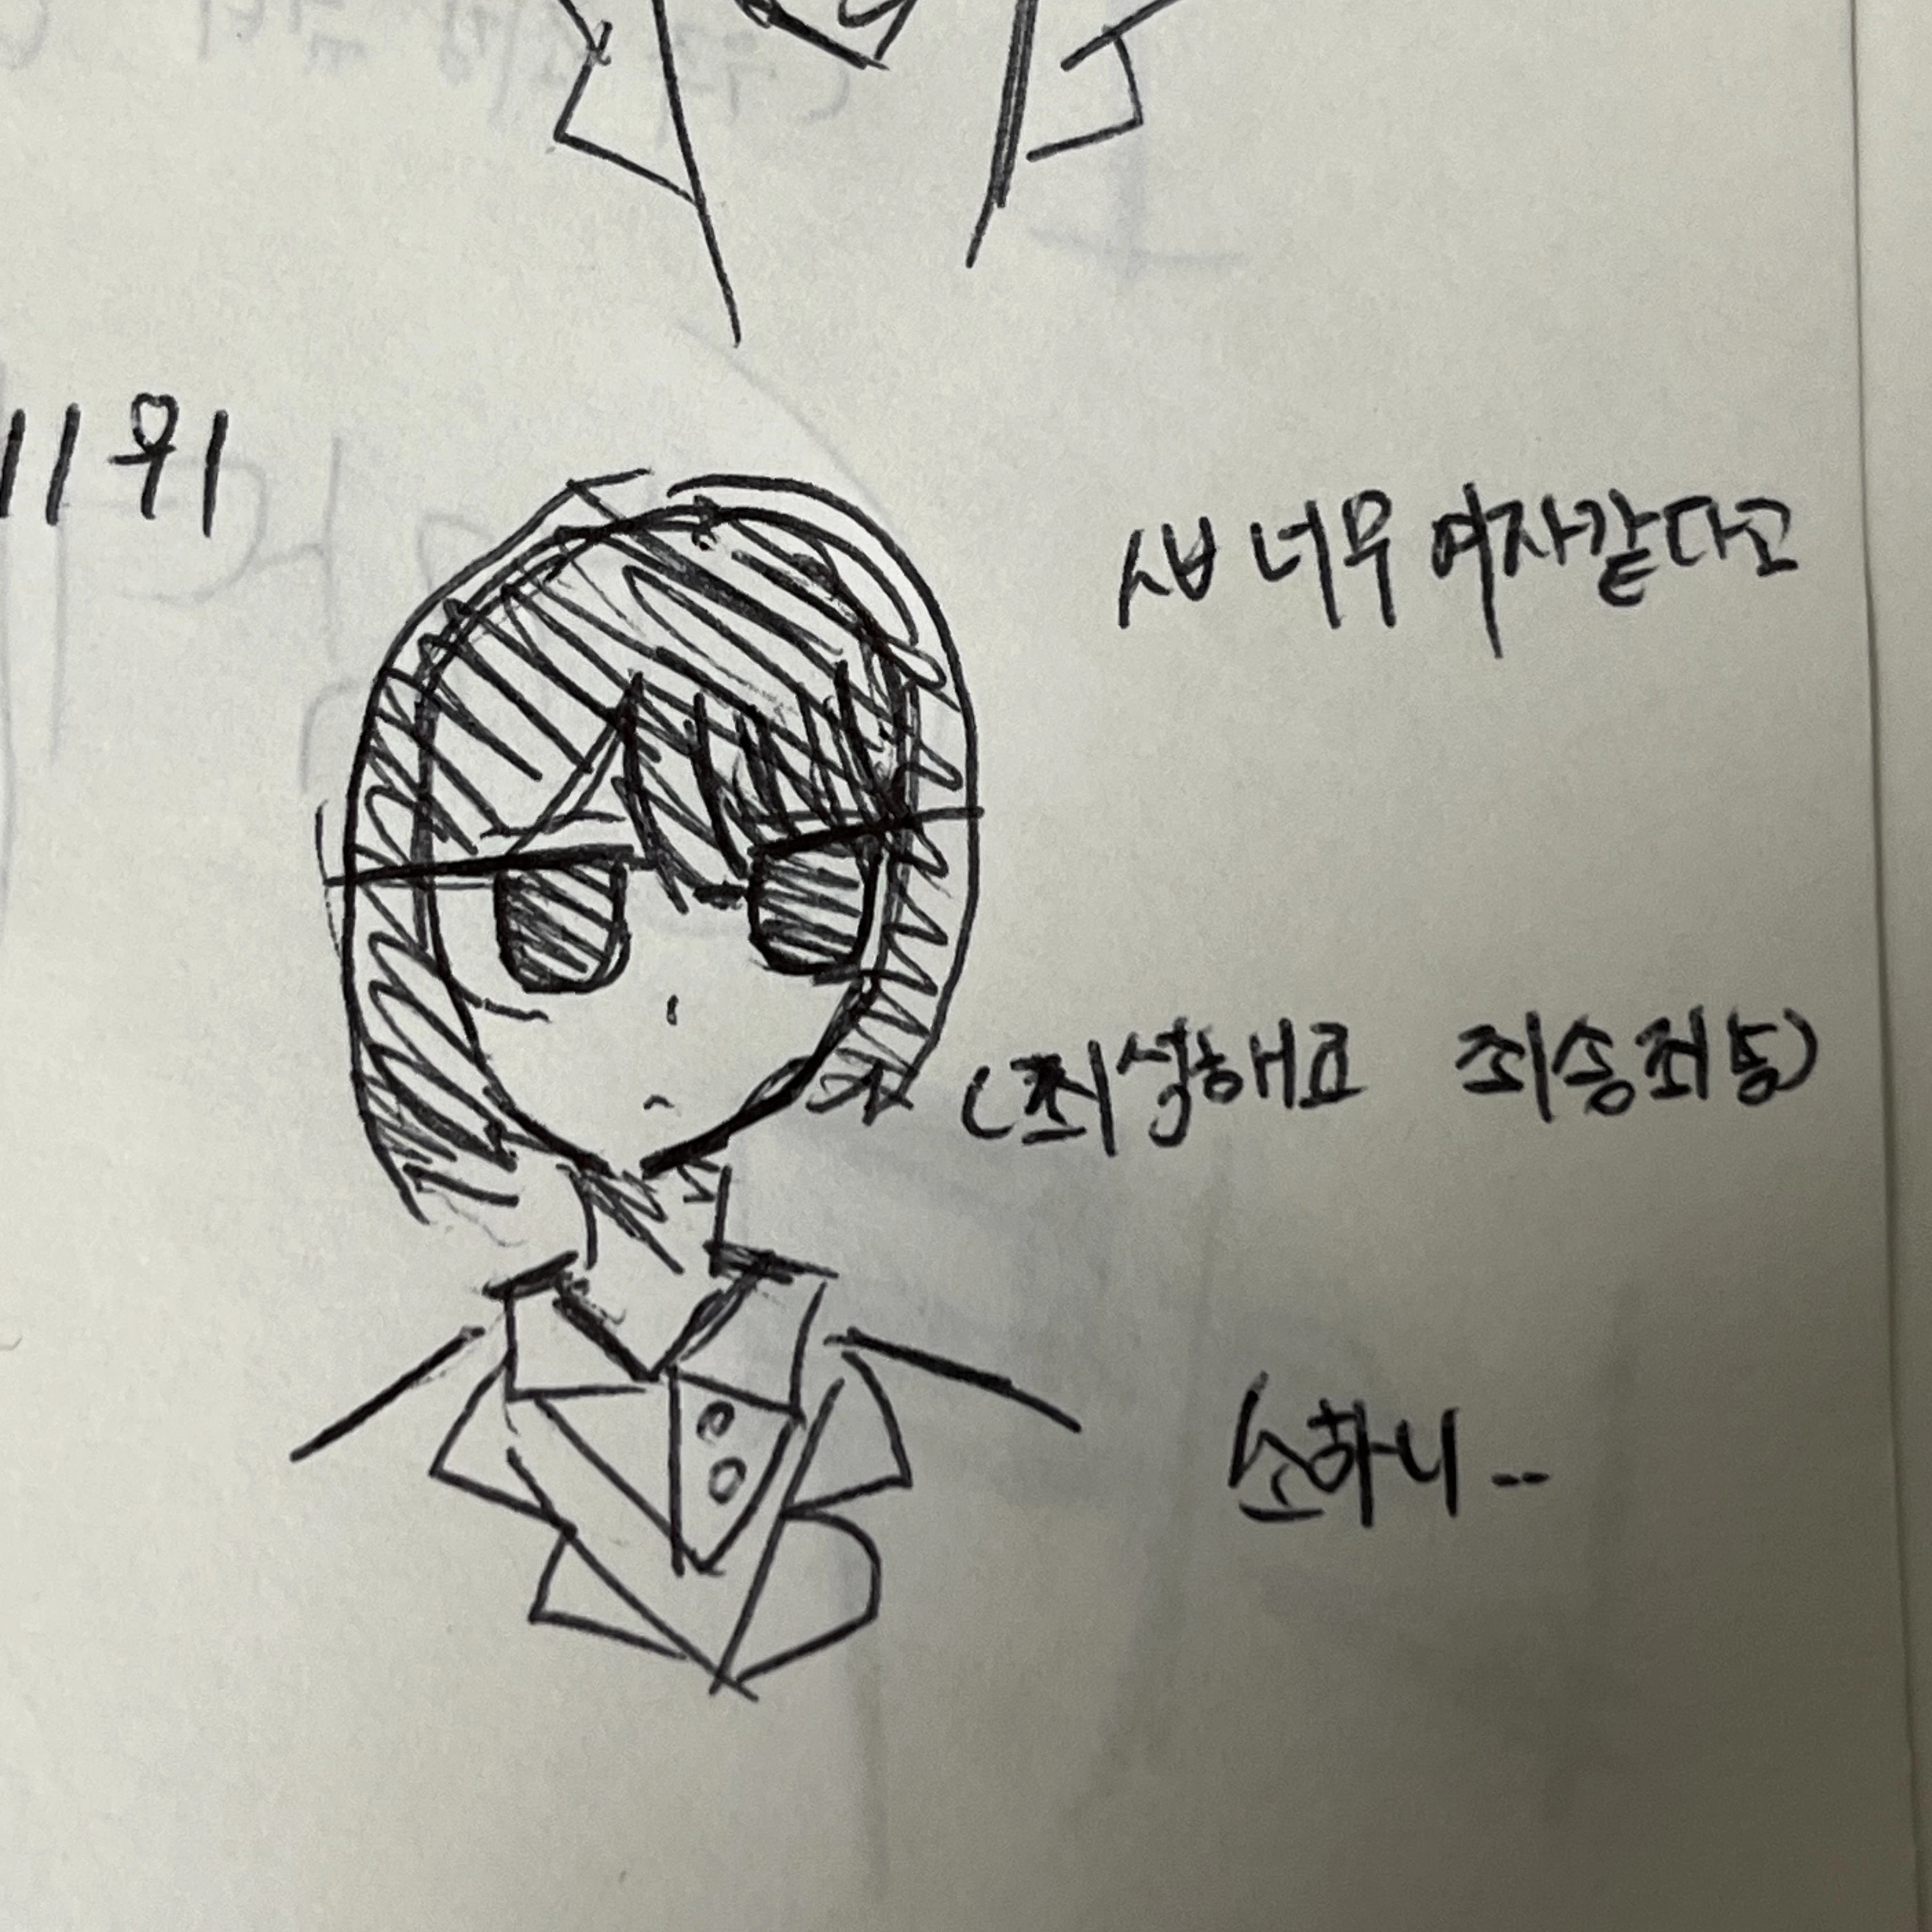 11위
ㅅㅂ 너무 여자같다고
(죄성해요 죄송죄송)
소하니..